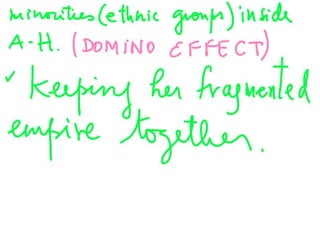 minorities (ethnic groups) inside
A-H. (DOMINO EFFECT)
✓ Keeping her fragmented
empire together.